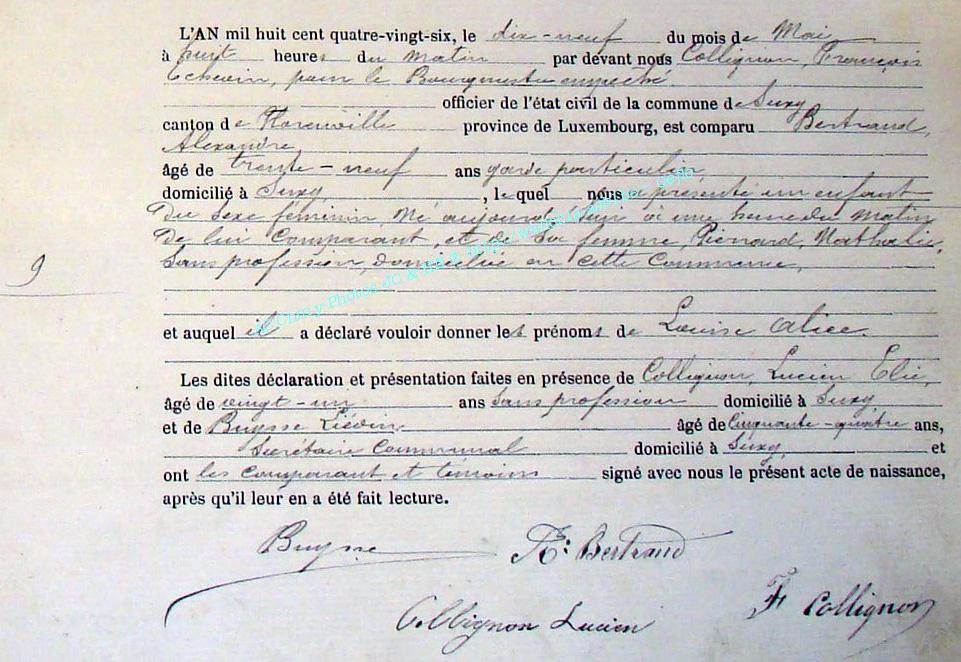 L'AN mil huit cent quatre-vingt-six, le dix-neuf du mois de Mai
à huit heures du matin par devant nous Collignon, François
Echevin, pour le Bourgmestre empêché.
officier de l'état civil de la commune de Suxy
canton de Florenville province de Luxembourg, est comparu Bertrand,
Alexandre,
âgé de trente-neuf ans garde particulier,
domicilié à Suxy, lequel nous a présenté un enfant
du sexe féminin né aujourd'hui à une heure du matin
de lui comparant, et de sa femme, Piérard, Nathalie,
sans profession, domiciliée en cette commune,
9
et auquel il a déclaré vouloir donner les prénoms de Louise Alice.
Les dites déclaration et présentation faites en présence de Collignon, Lucien Elie,
âgé de vingt-un ans sans profession domicilié à Suxy
et de Buysse Liévin âgé de cinquante-quatre ans,
Secrétaire Communal domicilié à Suxy, et
ont les comparant et temoins signé avec nous le présent acte de naissance,
après qu'il leur en a été fait lecture.
Buysse Ax: Bertrand
Collignon Lucien F Collignon